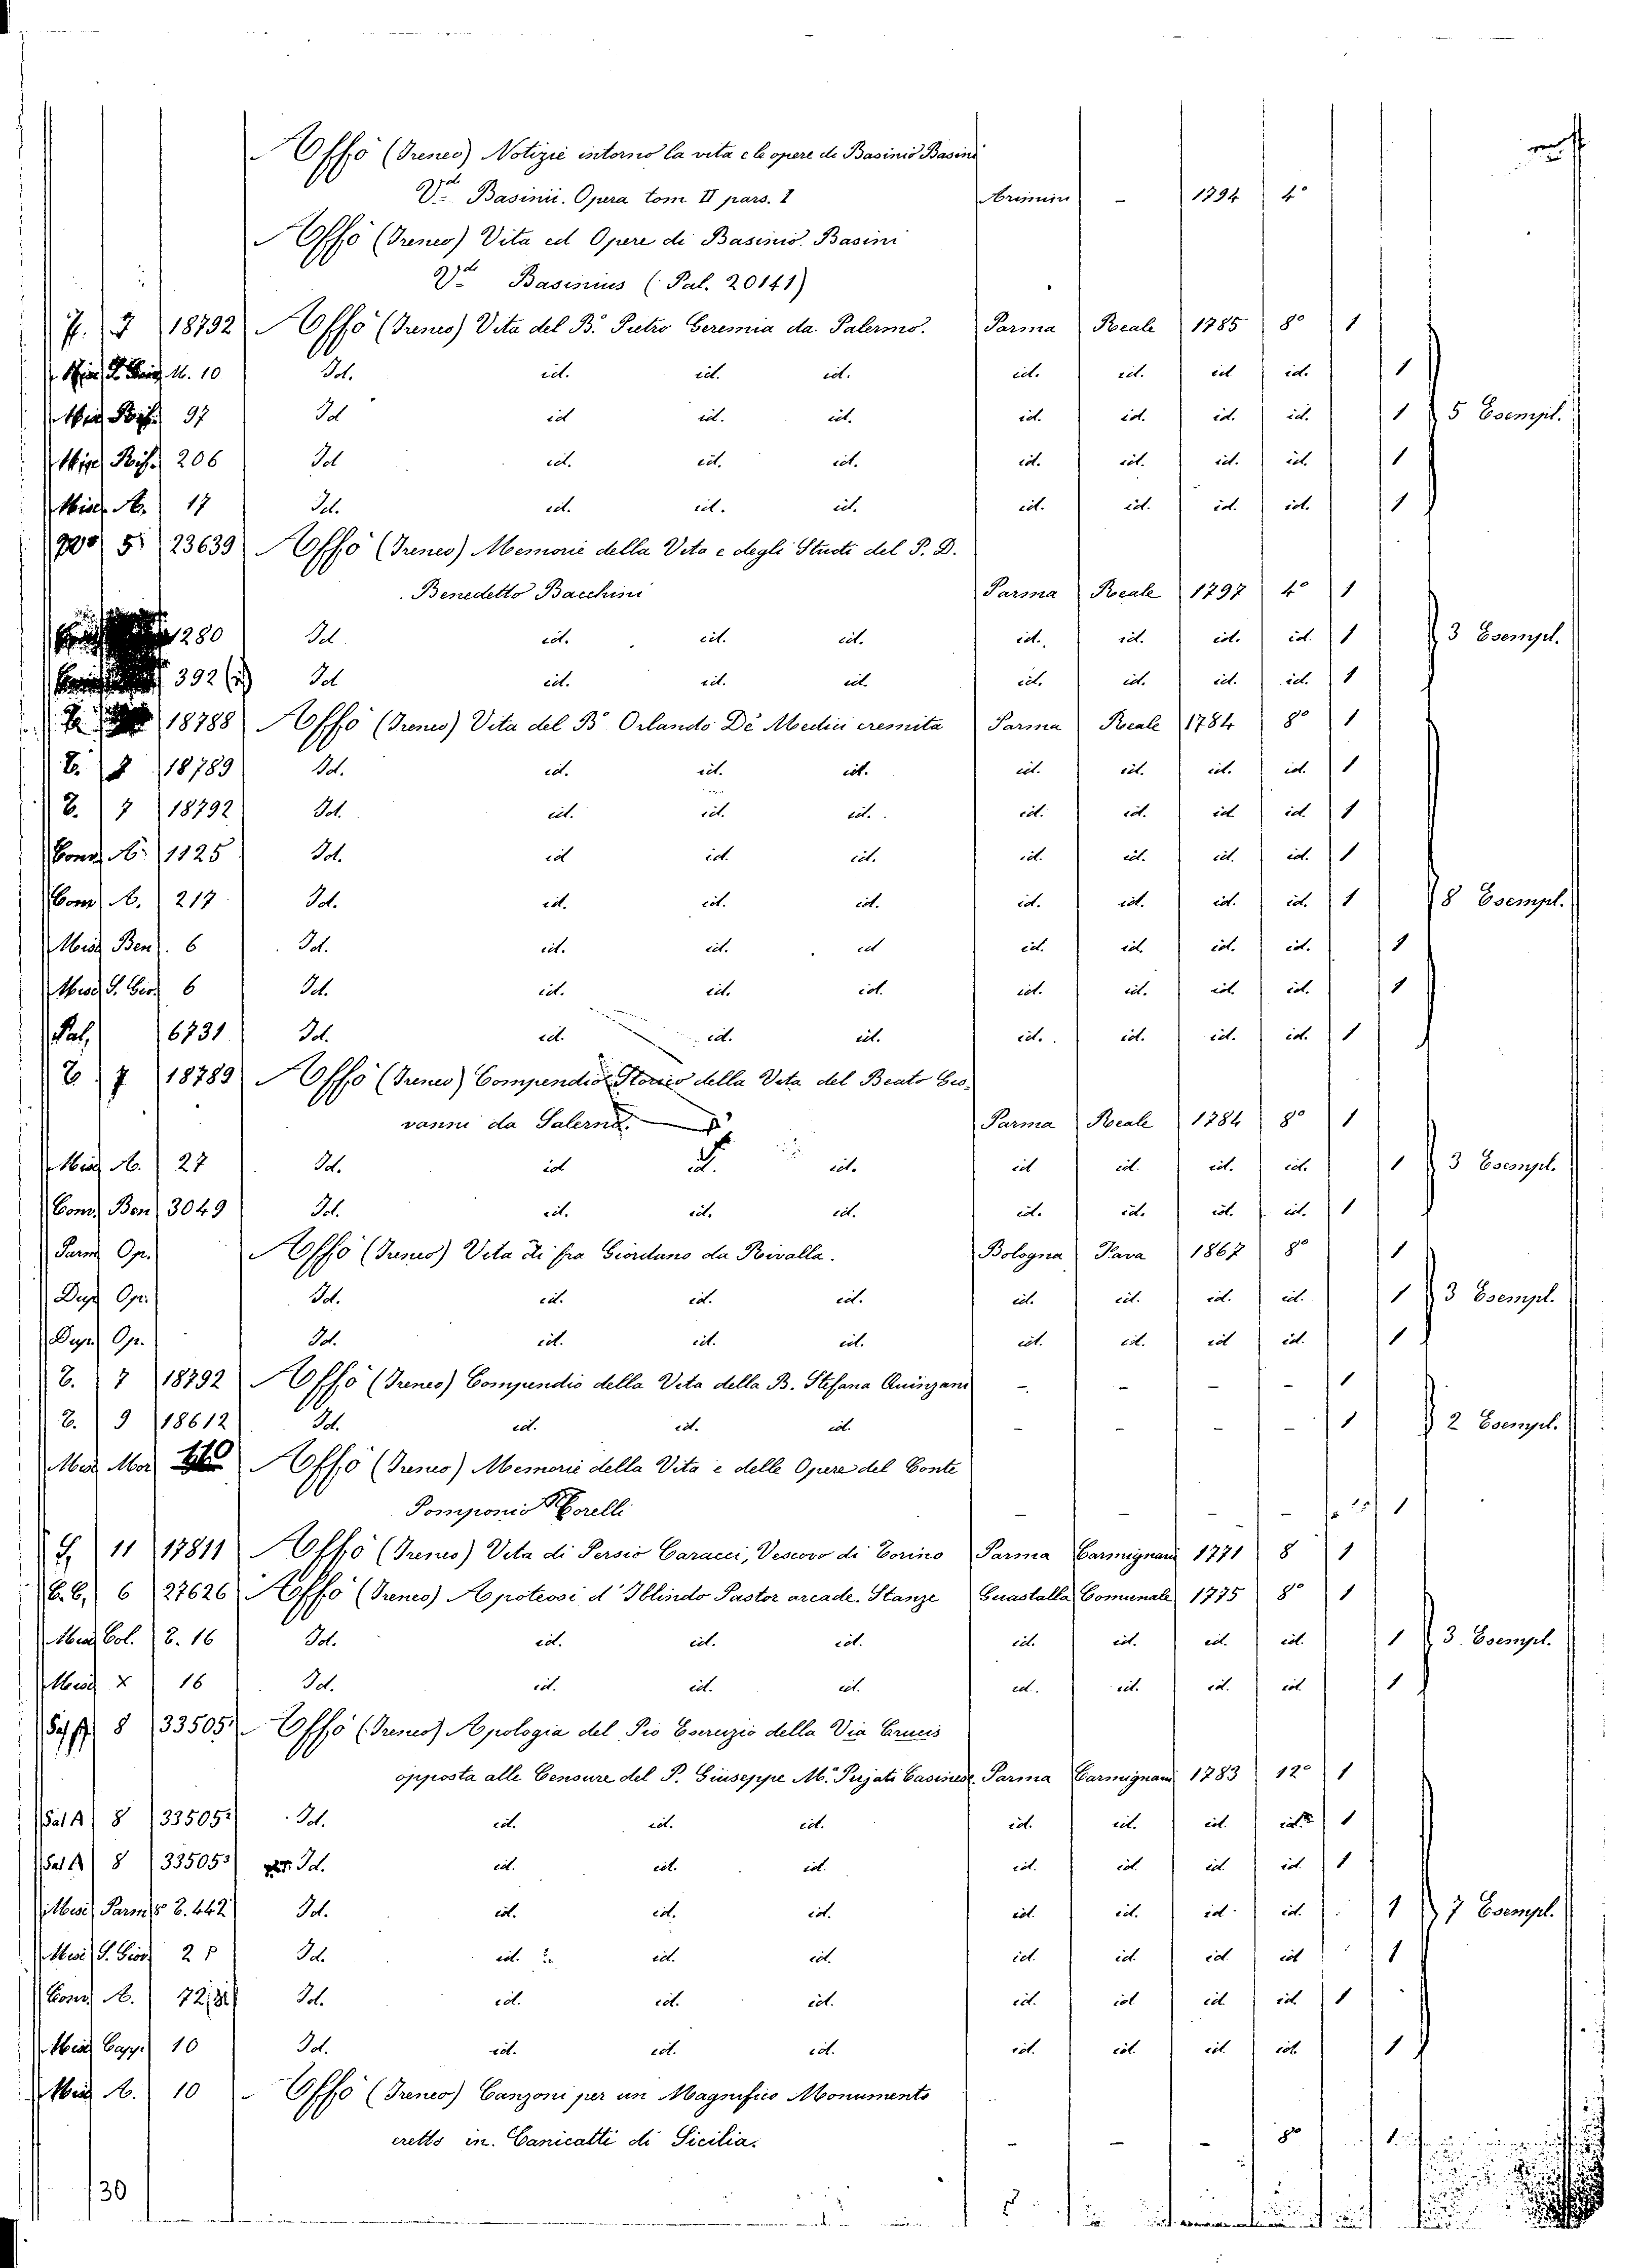 Affò (Ireneo) Notizie intorno la vita e le opere di Basinio Basini
V.de Basinii. Opera tom II pars. 1 Arimini - 1794 4°
Affò (Ireneo) Vita ed Opere di Basinio Basini
V.de Basinius (Pal. 20141)
7 18792 Affò (Ireneo) Vita del B. Pietro Geremia da Palermo. Parma Reale 1785 8° 1
M. 10 Id. id. id. id. id. id. id id. 1
97 Id id id. id. id. id. id. id. 1 5 Esempl.
Misc. Rif. 206 Id id. id. id. id. id. id. id. 1
Misc. A. 17 Id. id. id. id. id. id. id. id. 1
5 23639 Affò (Ireneo) Memorie della Vita e degli Studi del P. D.
Benedetto Bacchini Parma Reale 1797 4° 1
1280 Id id. id. id. id. id. id. id. 1 3 Esempl.
392 Id id. id. id. id. id. id. id. 1
18788 Affò (Ireneo) Vita del B. Orlando De Medici eremita Parma Reale 1784 8° 1
E. 7 18789 Id. id. id. id. id. id. id. id. 1
E. 7 18792 Id. id. id. id. id. id. id. id. 1
Conv. A. 1125 Id. id id. id. id. id. id. id. 1
Conv. A. 217 Id. id. id. id. id. id. id. id. 1 8 Esempl.
Misc. Ben. 6 Id. id. id. id id. id. id. id. 1
Misc. S. Gio. 6 Id. id. id. id. id. id. id. id. 1
Pal. 6731 Id. id. id. id. id. id. id. id. 1
E. 7 18789 Affò (Ireneo) Compendio Storico della Vita del Beato Gio-
vanni da Salerno. Parma Reale 1784 8° 1
Misc. A. 27 Id. id id. id. id. id. id. id. 1 3 Esempl.
Conv. Ben. 3049 Id. id. id. id. id. id. id. id. 1
Parm. Op. Affò (Ireneo) Vita di fra Giordano da Rivalla. Bologna Fava 1867 8° 1
Dup. Op. Id. id. id. id. id. id. id. id. 1 3 Esempl.
Dup. Op. Id. id. id. id. id. id. id id. 1
E. 7 18792 Affò (Ireneo) Compendio della Vita della B. Stefana Quinzani - - - - 1
E. 9 18612 Id. id. id. id. - - - - 1 2 Esempl.
Misc. Mor. Affò (Ireneo) Memorie della Vita e delle Opere del Conte
Pomponio Torelli - - - - 1
G. 11 17811 Affò (Ireneo) Vita di Persio Caracci, Vescovo di Torino Parma Carmignani 1771 8 1
6 27626 Affò (Ireneo) Apoteosi d'Iblindo Pastor arcade. Stanze Guastalla Comunale 1775 8° 1
Misc. Col. E. 16 Id. id. id. id. id. id. id. id. 1 3. Esempl.
Misc. X 16 Id. id. id. id. id. id. id. id. 1
8 33505 Affò (Ireneo) Apologia del Pio Esercizio della Via Crucis
opposta alle Censure del P. Giuseppe M.a Pujati Casinese Parma Carmignani 1783 12° 1
Sal. A 8 33505² Id. id. id. id. id. id. id. id. 1
Sal. A 8 33505³ Id. id. id. id. id. id. id. id. 1
Misc. Parm. 8° E. 442 Id. id. id. id. id. id. id. id. 1 7 Esempl.
Misc. S. Giov. 2 Id. id. id. id. id. id. id. id 1
Conv. A. Id. id. id. id. id. id id. id. 1
Misc. Capp. 10 Id. id. id. id. id. id. id. id. 1
Misc. A. 10 Affò (Ireneo) Canzoni per un Magnifico Monumento
eretto in. Canicatti di Sicilia. - - - 8° 1
30